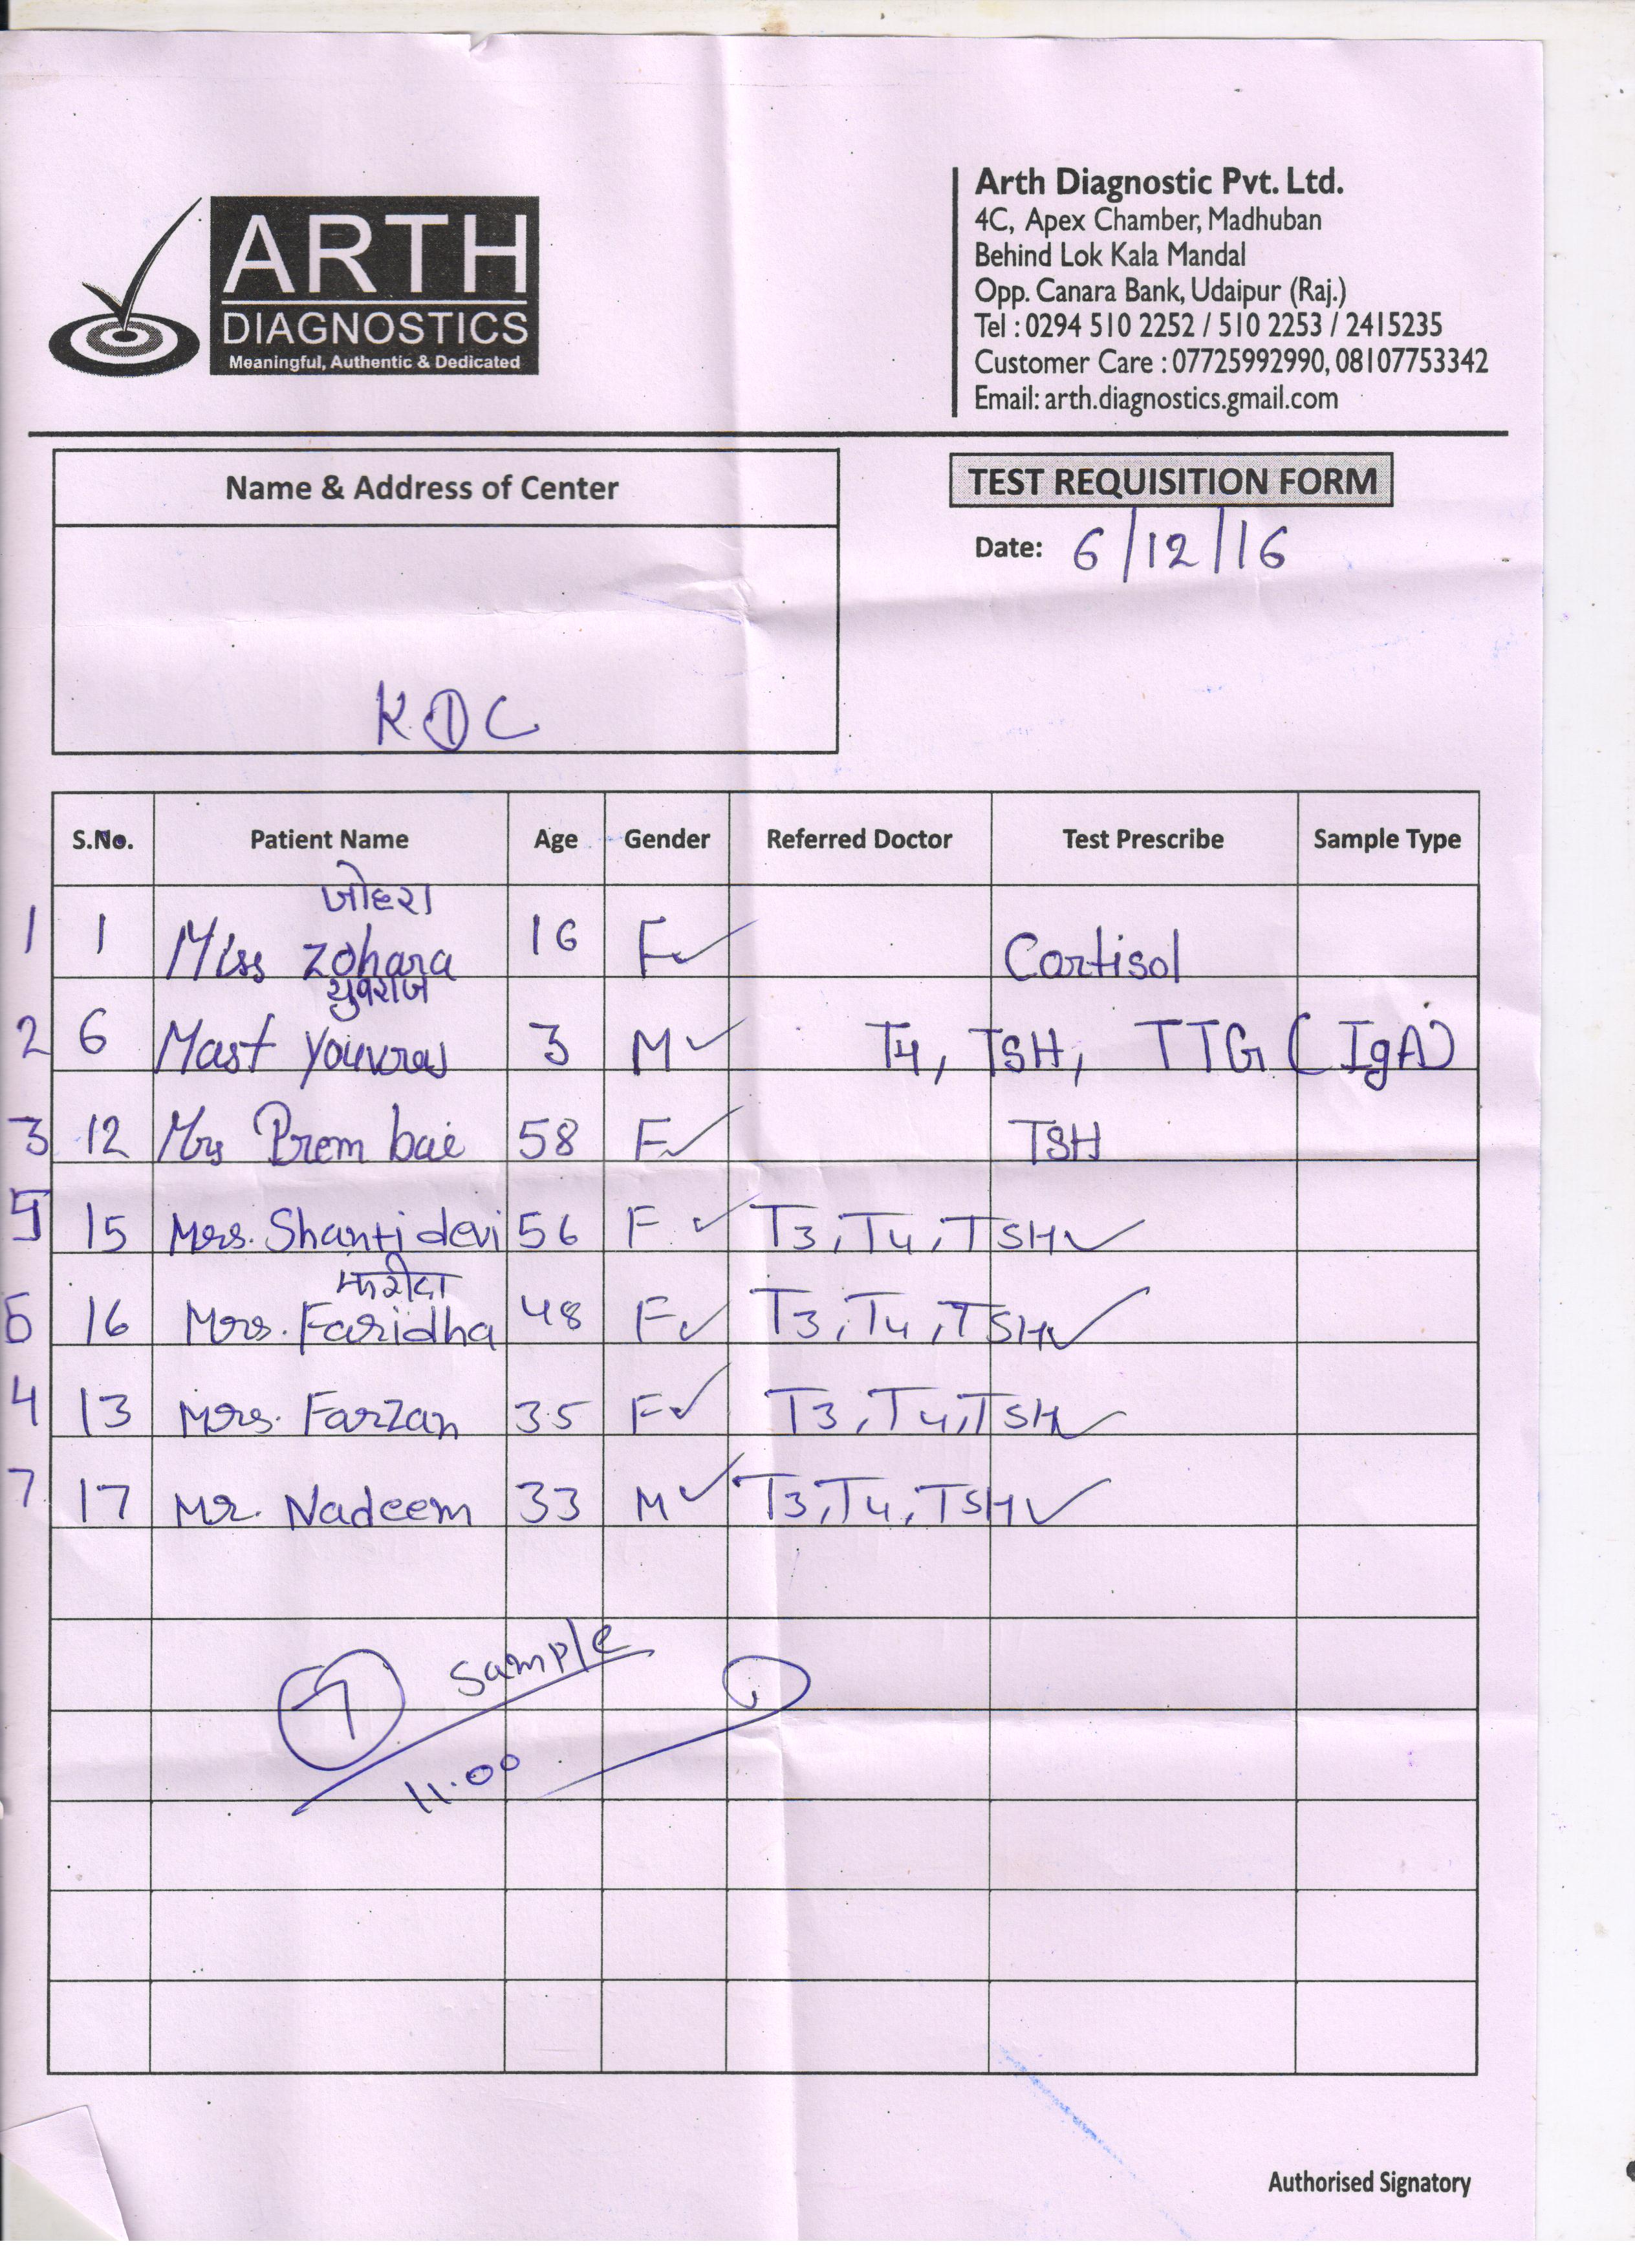 ARTH
DIAGNOSTICS
Meaningful, Authentic & Dedicated
Arth Diagnostic Pvt. Ltd.
4C, Apex Chamber, Madhuban
Behind Lok Kala Mandal
Opp. Canara Bank, Udaipur (Raj.)
Tel : 0294 510 2252 / 510 2253 / 2415235
Customer Care : 07725992990, 08107753342
Email: arth.diagnostics.gmail.com
Name & Address of Center
KDC
TEST REQUISITION FORM
Date: 6/12/16
S.No. Patient Name Age Gender Referred Doctor Test Prescribe Sample Type
जोहरा
1 1 Miss Zohara 16 F ✓ Cortisol
युवराज
2 6 Mast Youvraj 3 M ✓ T4, TSH, TTG (IgA)
3 12 Mrs Prem bai 58 F ✓ TSH
5 15 Mrs. Shanti devi 56 F ✓ T3, T4, TSH ✓
फरीदा
6 16 Mrs. Faridha 48 F ✓ T3, T4, TSH ✓
4 13 Mrs. Farzan 35 F ✓ T3, T4, TSH ✓
7 17 Mr. Nadeem 33 M ✓ T3, T4, TSH ✓
7 Sample
11.00
Authorised Signatory